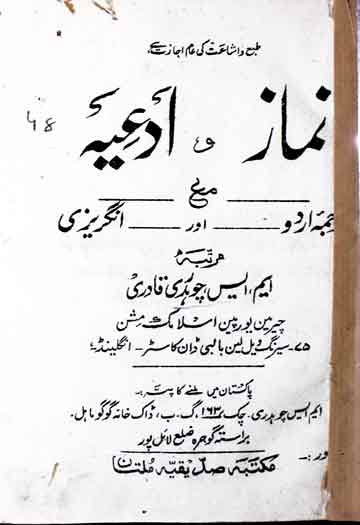 طبع و اشاعت کی عام اجازت ہے۔
نماز و ادعیہ
48
مع
جمہ اردو اور انگریزی
مرتبہ
ایم، ایس، چوہدری قادری
چیرمین یورپین اسلامک مشن
۷۵- سپرنگ ویل لین بالبی ڈان کاسٹر- انگلینڈ
پاکستان میں ملنے کا پتہ :-
ایم ایس چوہدری۔ چک ۱۶۳ گ۔ب، ڈاک خانہ گوگو مابل۔
براستہ گوجرہ ضلع لائل پور
ور :-
مکتبہ صدیقیہ ملتان